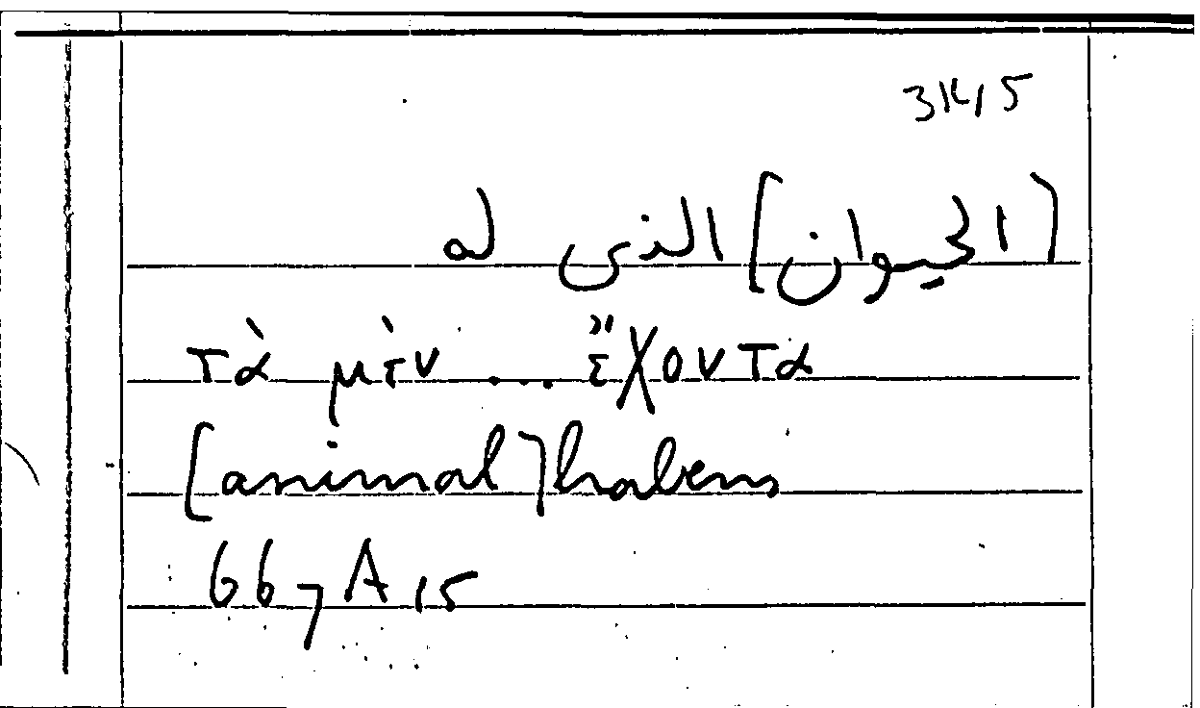 314,5
[الحيوان] الذى له
τὰ μὲν ... ἔχοντα
[animal] habens
667 A 15